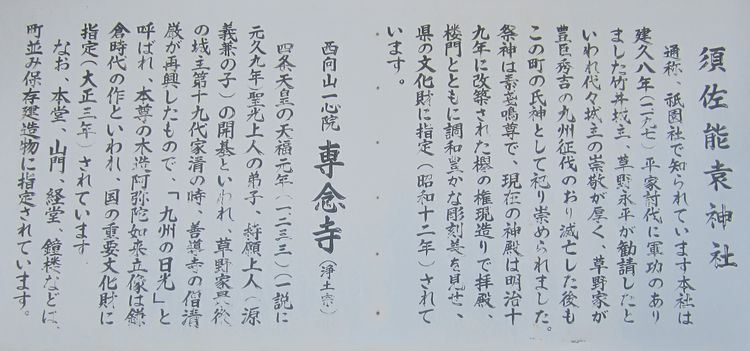 須佐能袁神社
通称、祇園社で知られています本社は
建久八年(一一九七)平家討伐に軍功のあり
ました竹井城主、草野永平が勧請したと
いわれ代々城主の崇敬が厚く、草野家が
豊臣秀吉の九州征伐のおり滅亡した後も
この町の氏神として祀り崇められました。
祭神は素戔嗚尊で、現在の神殿は明治十
九年に改築された欅の権現造りで拝殿、
楼門とともに調和豊かな彫刻美を見せ、
県の文化財に指定(昭和十二年)されて
います。
西向山一心院 専念寺(浄土宗)
四条天皇の天福元年(一二三三)(一説に
元久九年)聖光上人の弟子、符願上人(源
義兼の子)の開基といわれ、草野家
の城主第十九代家清の時、善導寺の僧清
厳が再興したもので、「九州の日光」と
呼ばれ、本尊の木造阿弥陀如来立像は鎌
倉時代の作といわれ、国の重要文化財に
指定(大正三年)されています
なお、本堂、山門、経堂、鐘楼などは、
町並み保存建造物に指定されています。